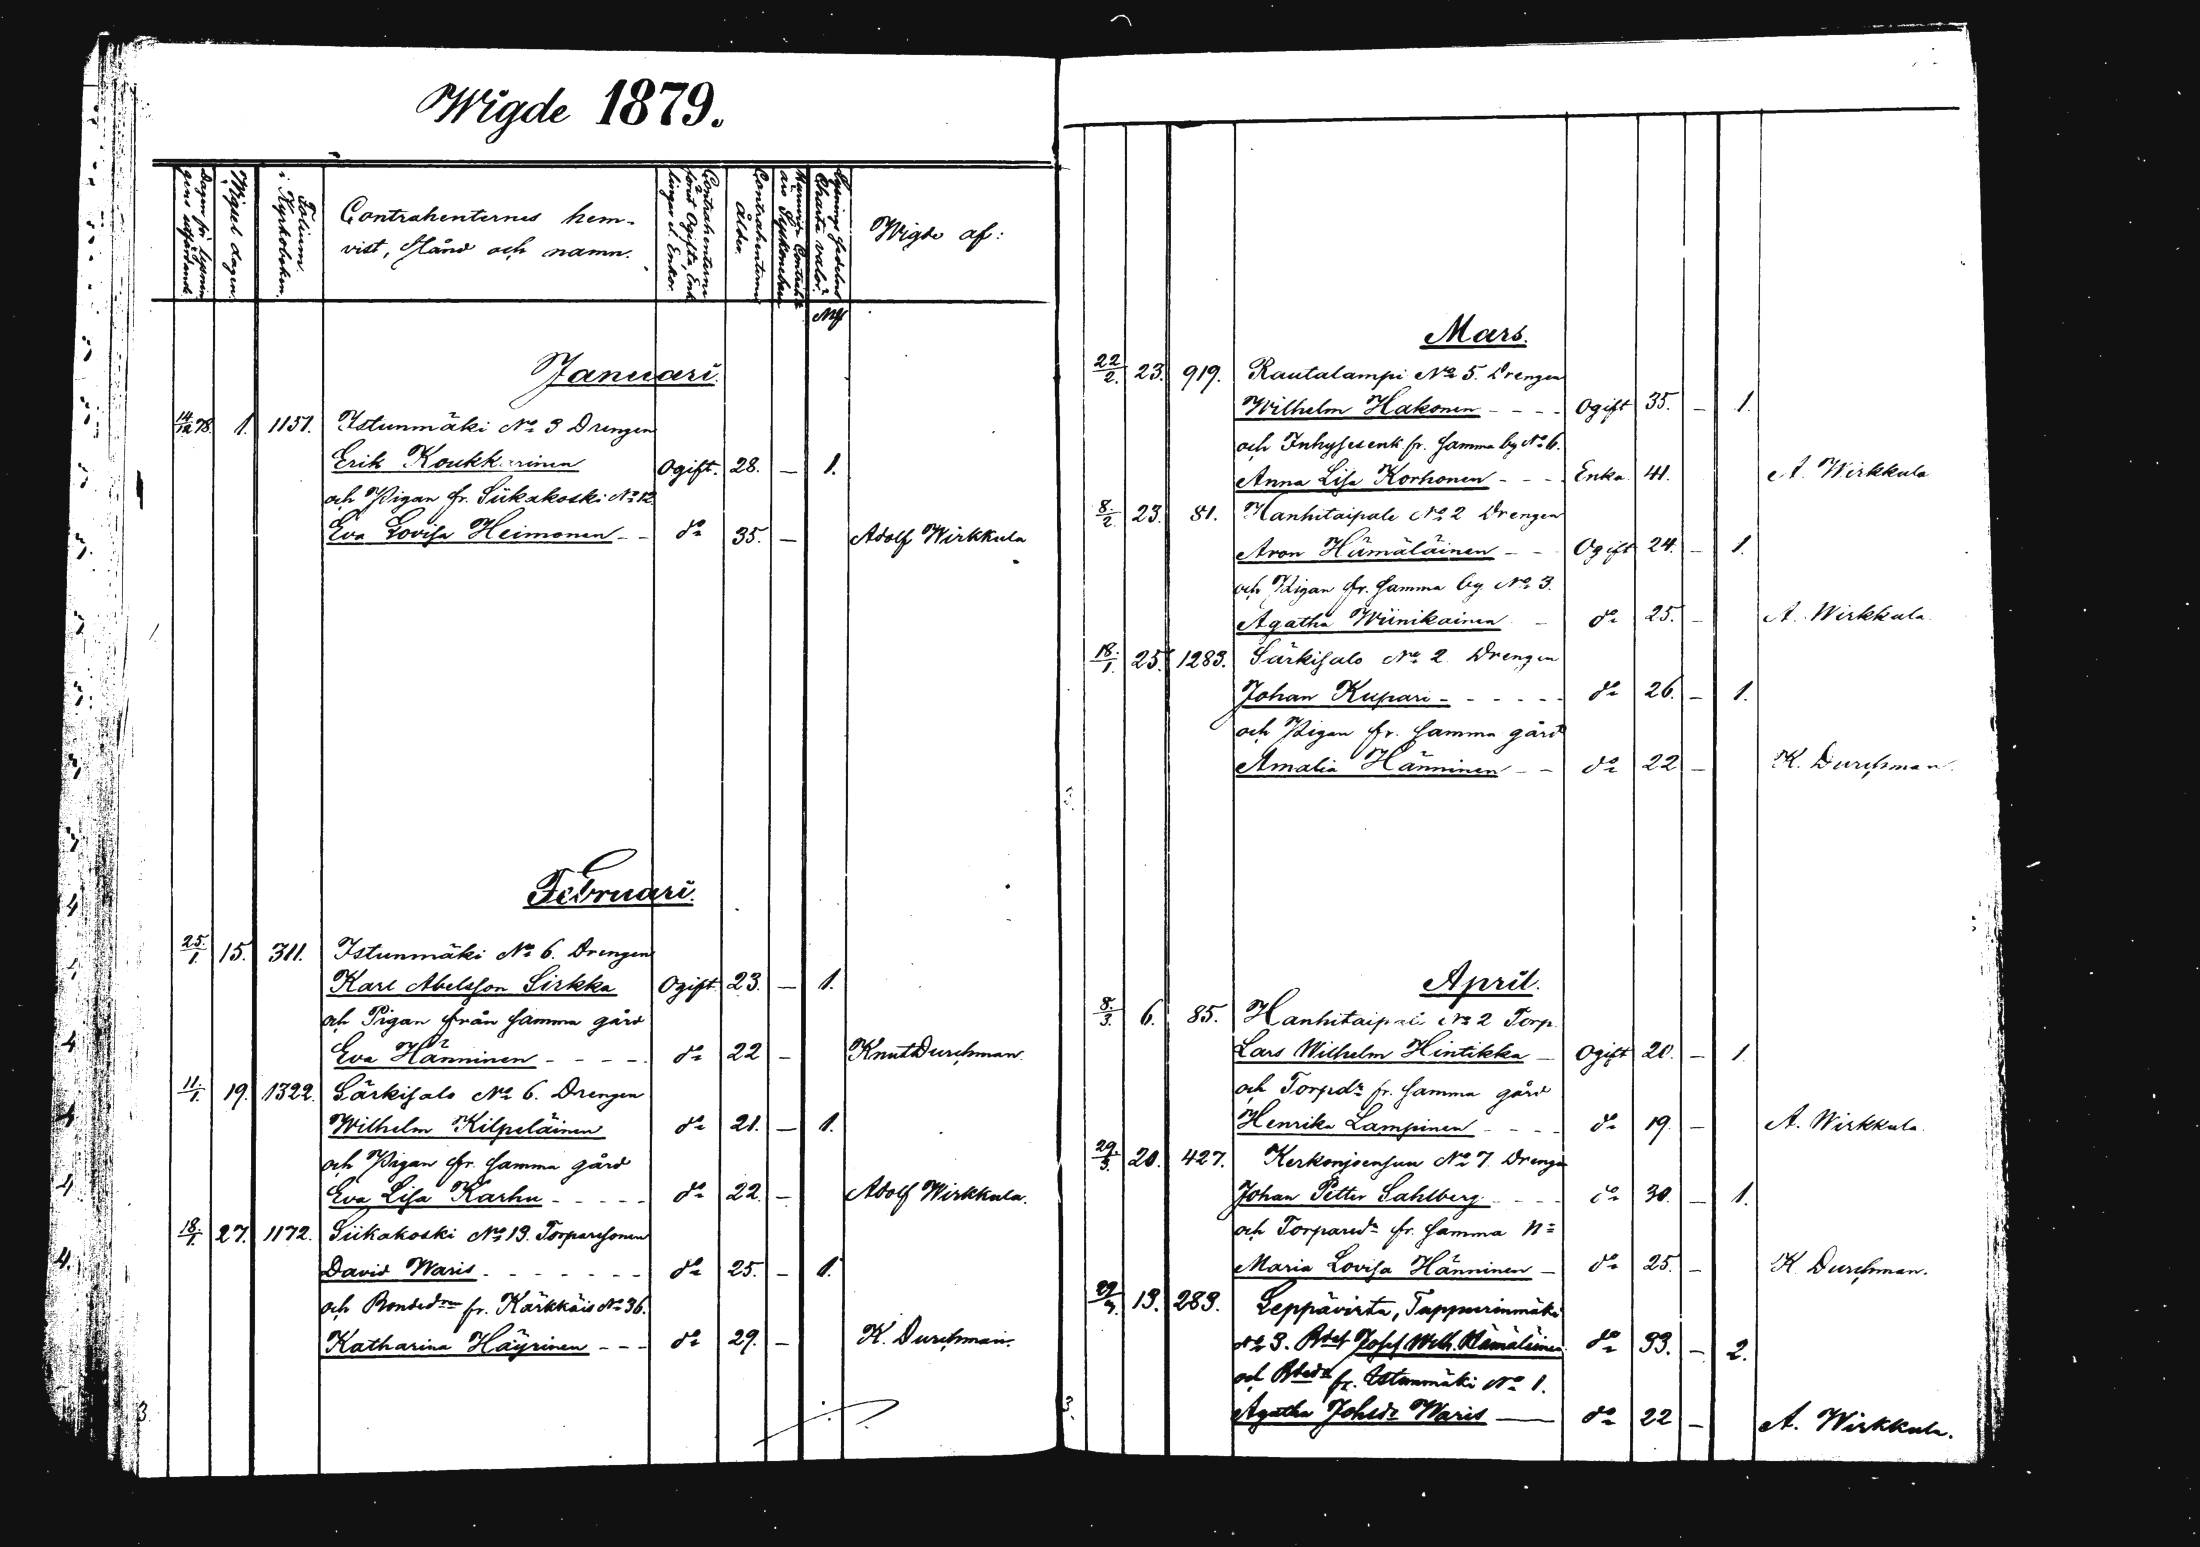 Wigde 1879.
Dagen för lysnin
gens utfärdande
Wigsel dagen.
Folium
i Kyrkoboken.
Contrahenternes hem-
vist, stånd och namn.
Contrahenterne
förut Ogifta, Enk
lingar el. Enkor.
Contrahenternes
ålder.
Charta valör.
Wigde af:
Januari.
14/12 78. 1. 1151. Istunmäki No 3 Drengen
Erik Koukkarinen Ogift. 28. — 1.
och Pigan fr. Siikakoski No 12.
Eva Lovisa Heimonen - - do 35. — Adolf Wirkkula
Februari.
25./1. 15. 311. Istunmäki No 6. Drengen
Karl Abelsson Sirkka Ogift. 23. — 1.
och Pigan från samma gård
Eva Hänninen - - - - do 22 — Knut Durchman.
11./1. 19. 1322. Särkisalo No 6. Drengen
Wilhelm Kilpeläinen do 21. — 1.
och Pigan fr. samma gård
Eva Lisa Karhu - - - - - do 22. — Adolf Wirkkula.
18./1. 27. 1172. Siikakoski No 13. Torparesonen
David Waris - - - - - - - do 25. — 1.
och Bondedrn fr. Kärkkäis No 36.
Katharina Häyrinen - - - do 29. — K. Durchman.
Mars.
22/2. 23. 919. Rautalampi No 5. Drengen
Wilhelm Hakonen - - - - Ogift 35. — 1.
och Inhysesenk fr. samma by No 6.
Anna Lisa Korhonen - - - Enka. 41. A. Wirkkula
8./2. 23. 81. Hanhitaipale No 2 Drengen
Aron Hämäläinen - - Ogift 24. — 1.
och Pigan fr. samma by No 3.
Agatha Wiinikainen - do 25. — A. Wirkkula.
18./1. 25. 1283. Särkisalo No 2. Drengen
Johan Kupari - - - - - - do 26. — 1.
och Pigan fr. samma gård
Amalia Hänninen - - do 22 — K. Durchman.
April.
8./3. 6. 85. Hanhitaipale No 2 Torp.
Lars Wilhelm Hintikka — Ogift 20. — 1.
och Torpdr fr. samma gård
Henrika Lampinen - - - - do 19. — A. Wirkkula.
29./3. 20. 427. Kerkonjoensuu No 7. Drengen
Johan Petter Sahlberg - - - - do 30. — 1.
och Torparedr fr. samma No
Maria Lovisa Hänninen — do 25. — K. Durchman.
13. 283. Leppävirta, Tappurinmäki
No 3. Bdes Josef Wilh. Hämäläinen do 33. — 2.
och Bdedr fr. Istunmäki No 1.
Agatha Johsdr Waris — do 22 — A. Wirkkula.